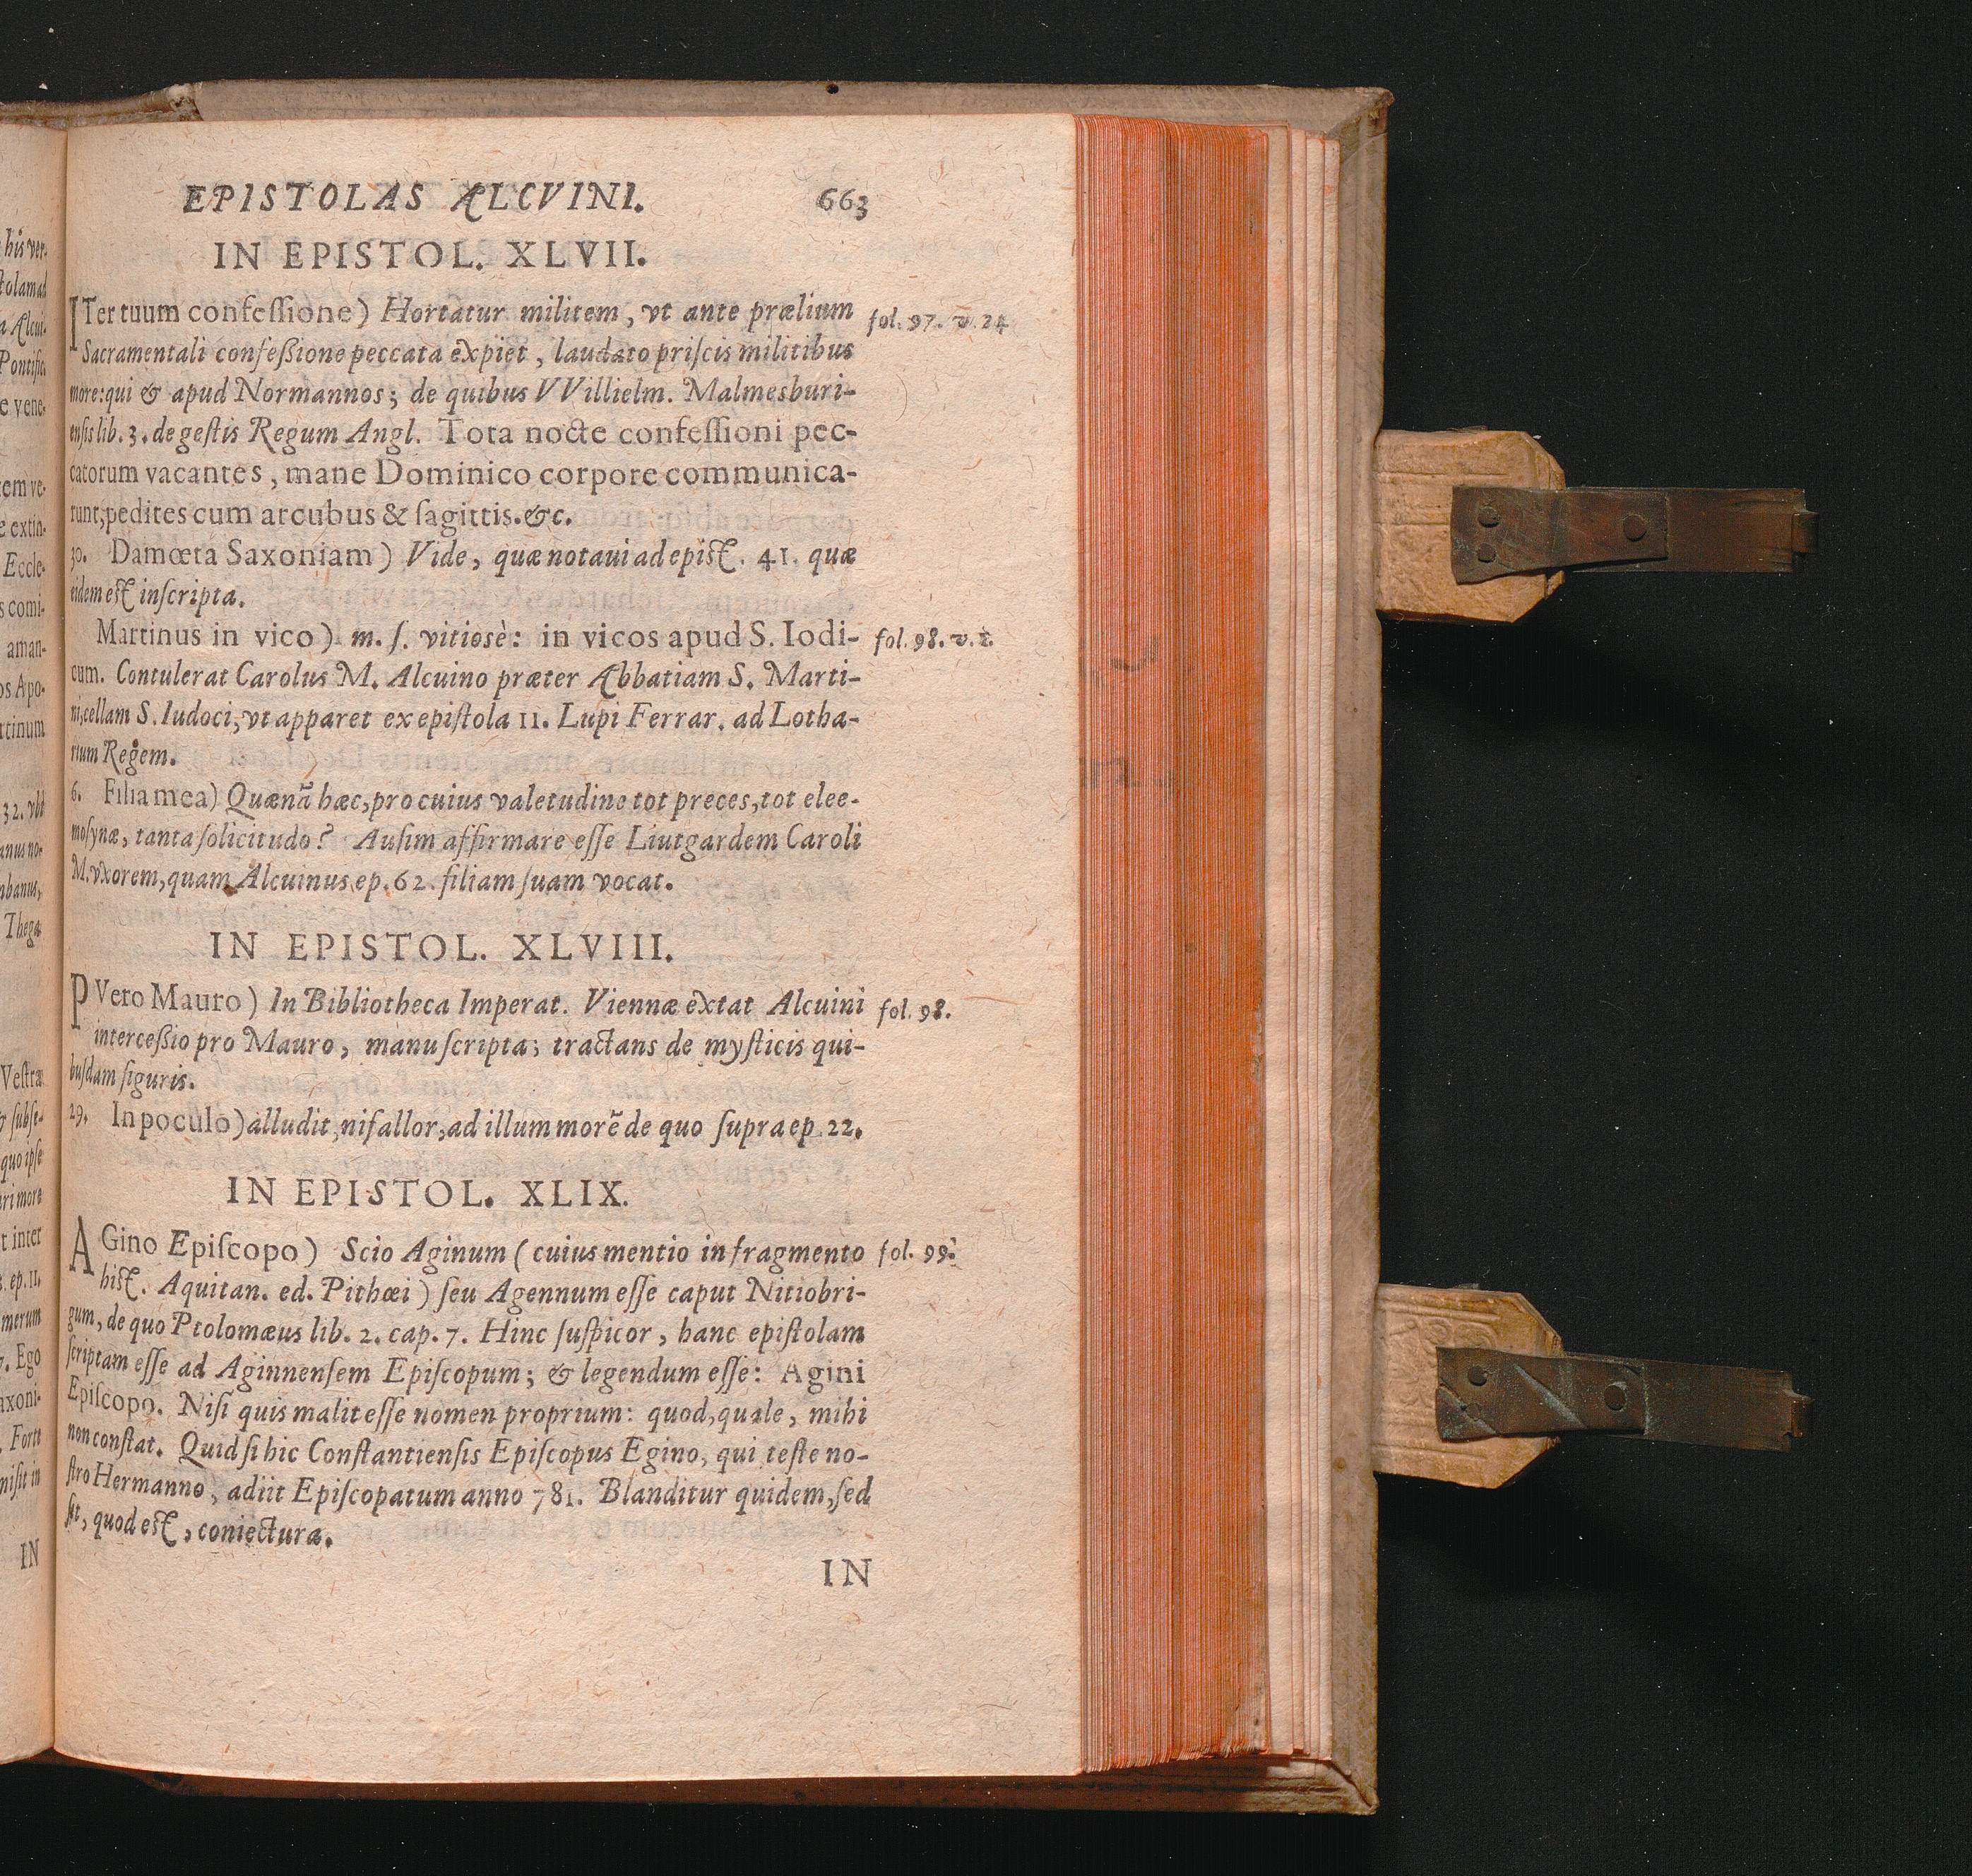 EPISTOLAS ALCVINI. 663
IN EPISTOL. XLVII.
ITer tuum confeſſione) Hortatur militem, vt ante prælium fol. 97. v. 24
Sacramentali confeſsione peccata expiet, laudato priſcis militibus
more: qui & apud Normannos; de quibus VVillielm. Malmesburi-
enſis lib. 3. de geſtis Regum Angl. Tota nocte confeſſioni pec-
catorum vacantes, mane Dominico corpore communica-
runt; pedites cum arcubus & ſagittis. &c.
30. Damœta Saxoniam) Vide, quæ notaui ad epiſt. 41. quæ
eidem eſt inſcripta.
Martinus in vico) m. ſ. vitiosè: in vicos apud S. Iodi- fol. 98. v. 1.
cum. Contulerat Carolus M. Alcuino præter Abbatiam S. Marti-
ni, cellam S. Iudoci, vt apparet ex epiſtola 11. Lupi Ferrar. ad Lotha-
rium Regem.
6. Filia mea) Quænā hæc, pro cuius valetudine tot preces, tot elee-
moſynæ, tanta ſolicitudo? Auſim affirmare eſſe Liutgardem Caroli
M. vxorem, quam Alcuinus ep. 62. filiam ſuam vocat.
IN EPISTOL. XLVIII.
PVero Mauro) In Bibliotheca Imperat. Viennæ extat Alcuini fol. 98.
interceſsio pro Mauro, manuſcripta; tractans de myſticis qui-
buſdam figuris.
29. In poculo) alludit, ni fallor, ad illum morē de quo ſupra ep. 22.
IN EPISTOL. XLIX.
AGino Epiſcopo) Scio Aginum (cuius mentio in fragmento fol. 99.
hiſt. Aquitan. ed. Pithœi) ſeu Agennum eſſe caput Nitiobri-
gum, de quo Ptolomæus lib. 2. cap. 7. Hinc ſuſpicor, hanc epiſtolam
ſcriptam eſſe ad Aginnenſem Epiſcopum; & legendum eſſe: Agini
Epiſcopo. Niſi quis malit eſſe nomen proprium: quod, quale, mihi
non conſtat. Quid ſi hic Conſtantienſis Epiſcopus Egino, qui teſte no-
ſtro Hermanno, adiit Epiſcopatum anno 781. Blanditur quidem, ſed
ſit, quod eſt, coniectura.
IN